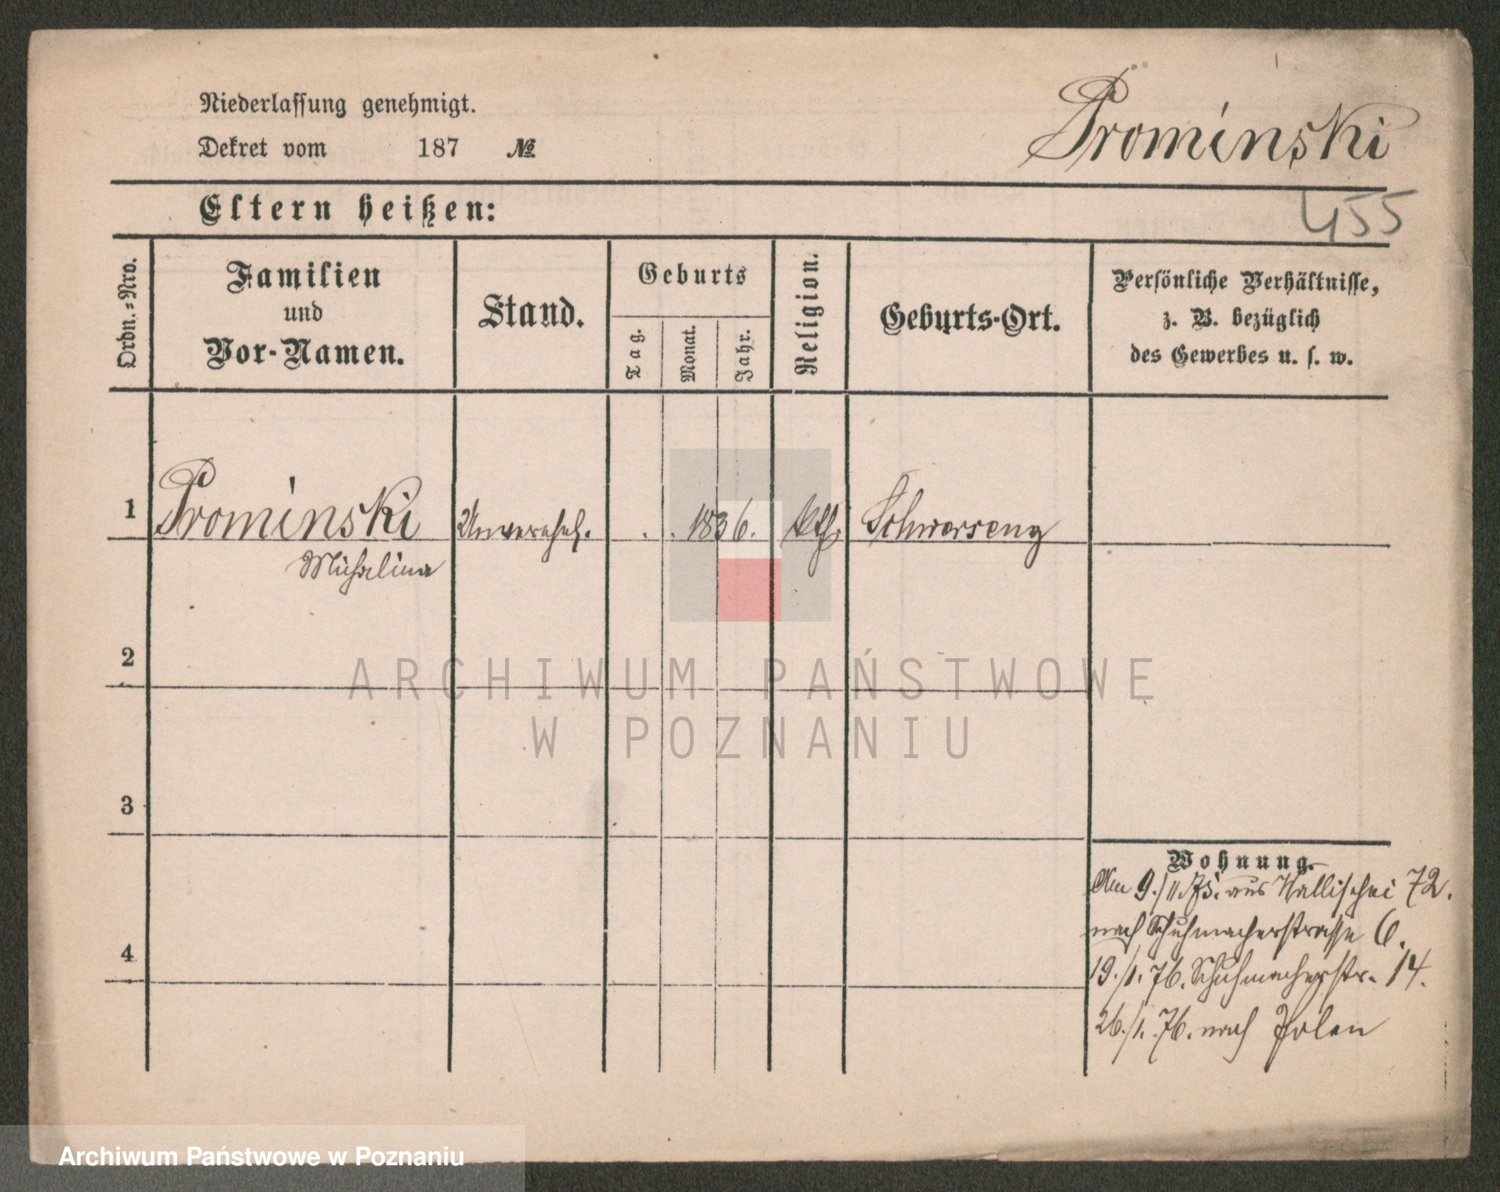 Niederlassung genehmigt.
Dekret vom 187 №
Prominski
455
Eltern heißen:
Ordn.-Nro.
Familien
und
Vor-Namen.
Stand.
Geburts
Tag.
Monat.
Jahr.
Religion.
Geburts-Ort.
Persönliche Verhältnisse,
z. B. bezüglich
des Gewerbes u. s. w.
1 Prominski Unverehel. . . 1836. kth. Schwersenz
Michalina
2
3
4
Wohnung.
Am 9./11.75. aus Wallischei 72.
nach Schuhmacherstrasse 6.
19./1. 76. Schuhmacherstr. 14.
26./1. 76. nach Polen
ARCHIWUM PAŃSTWOWE
W POZNANIU
Archiwum Państwowe w Poznaniu